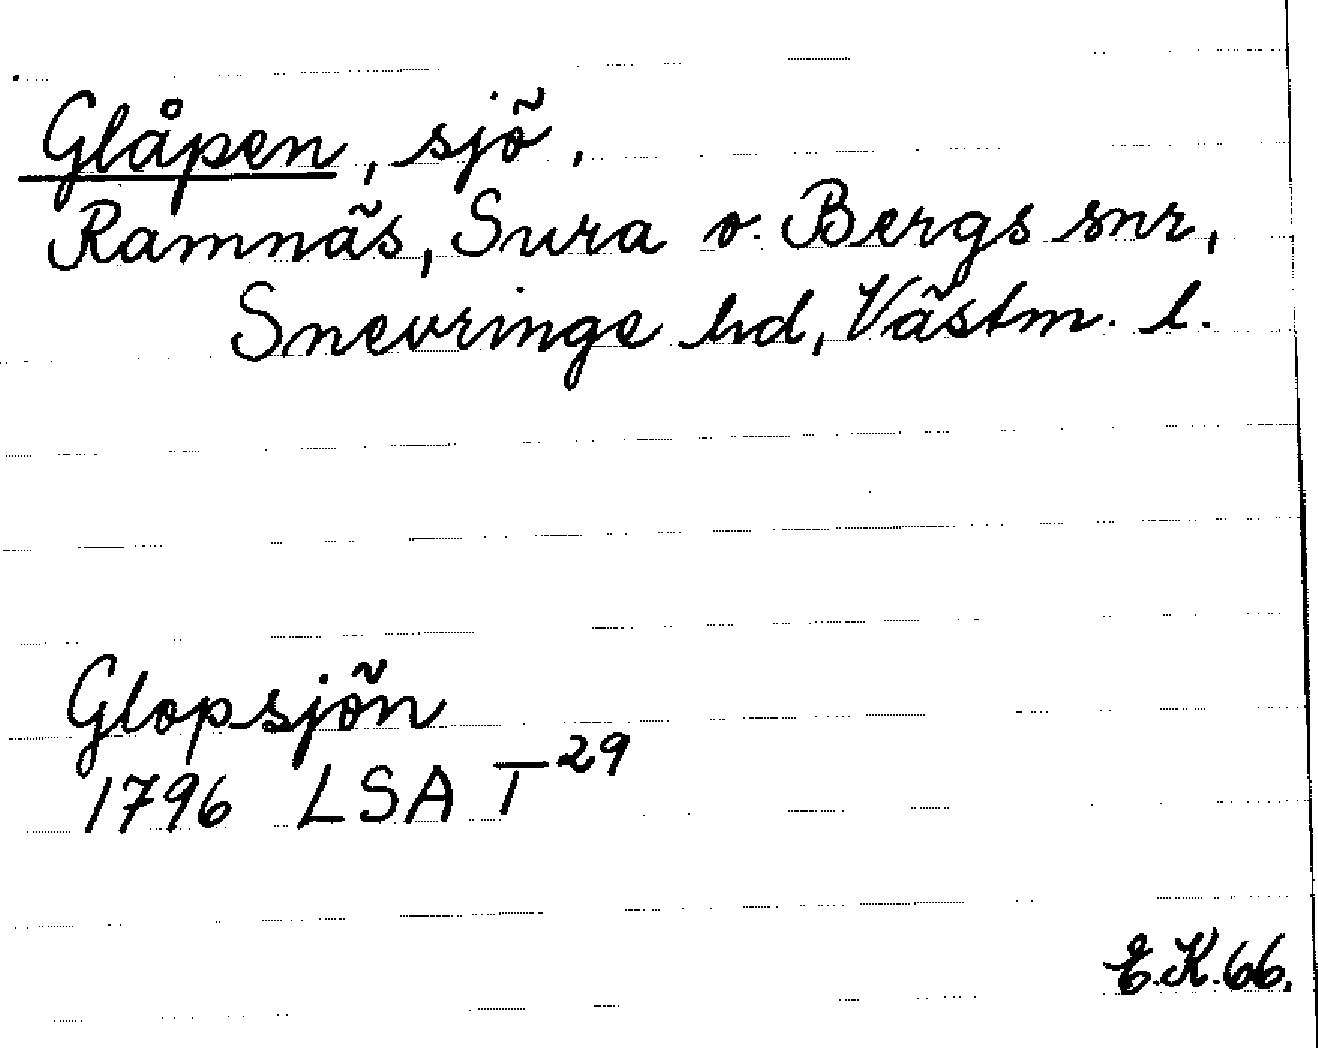 Glåpen, sjö.
Ramnäs, Sura o. Bergs snr,
Snevringe hd, Västm. l.
Glopsjön
1796 LSA T²⁹
E.K.66.